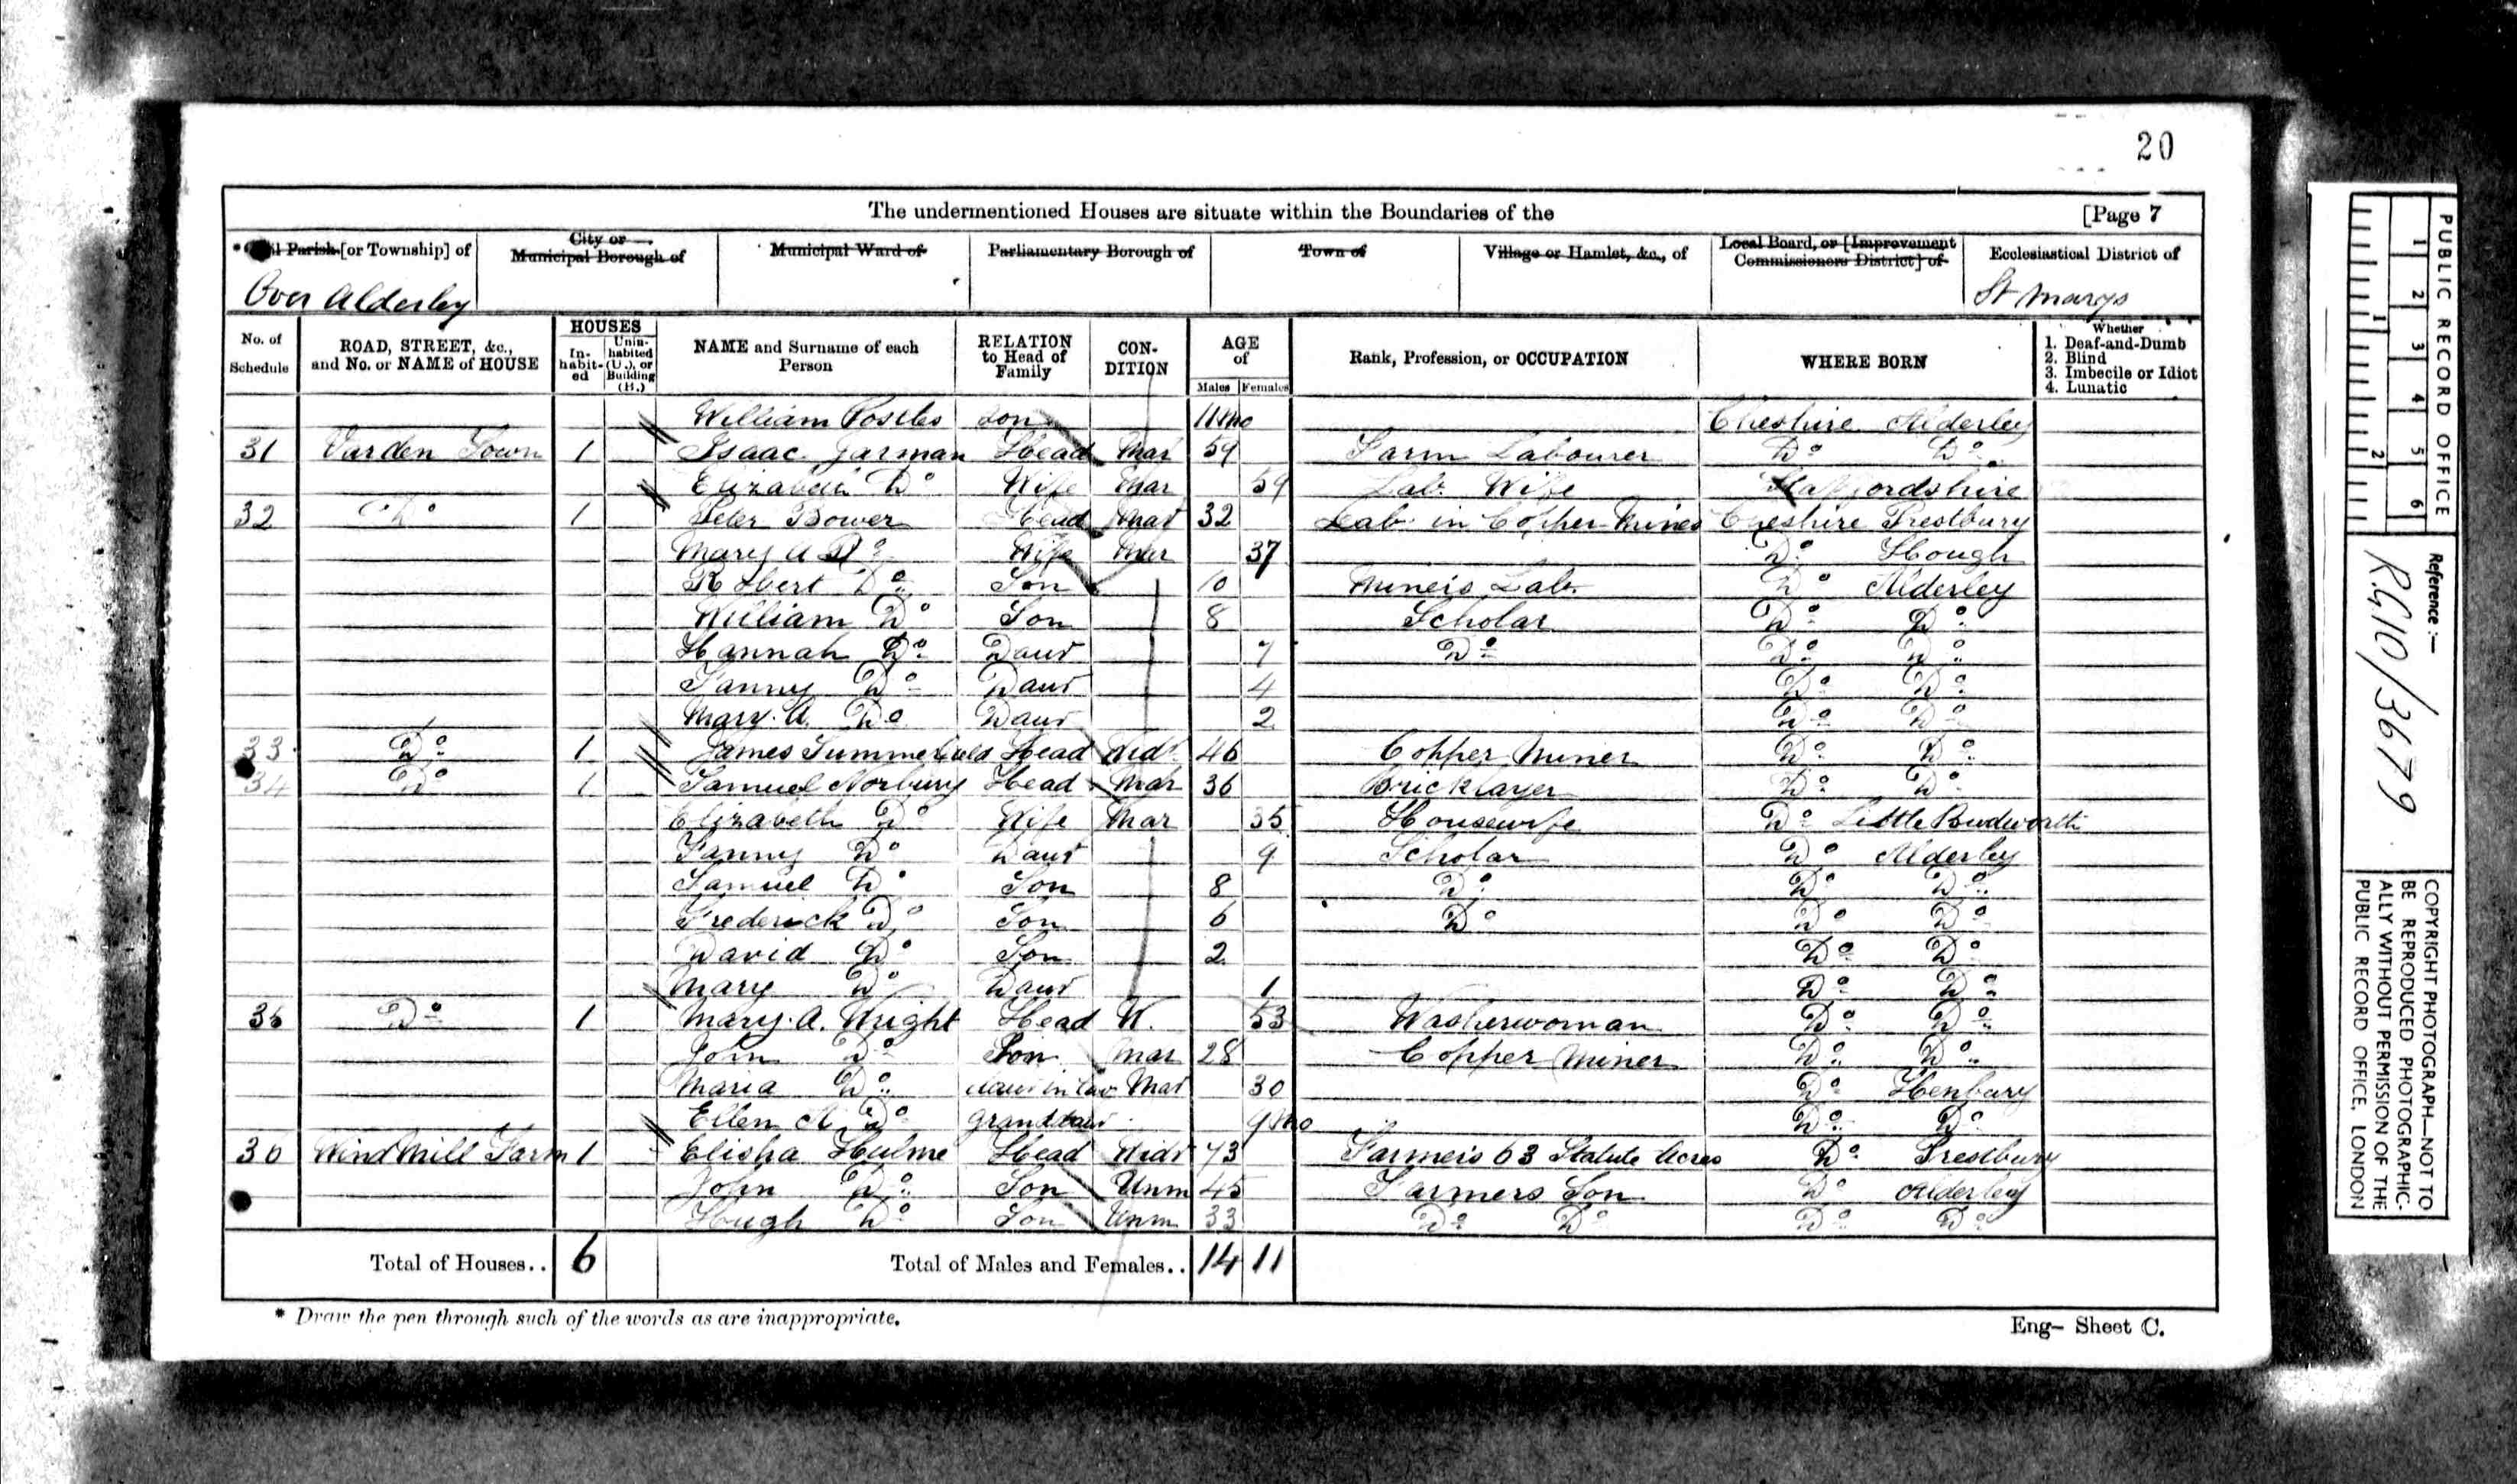 20
The undermentioned Houses are situate within the Boundaries of the [Page 7
Parish [or Township] of
City or Municipal Borough of
Municipal Ward of
Parliamentary Borough of
Town of
Village or Hamlet, &c., of
Local Board, or [Improvement Commissioners District] of
Ecclesiastical District of
Over Alderley St Marys
No. of Schedule
ROAD, STREET, &c., and No. or NAME of HOUSE
HOUSES
In-habit-ed
Unin-habited (U.), or Building (B.)
NAME and Surname of each Person
RELATION to Head of Family
CON-DITION
AGE of
Males Females
Rank, Profession, or OCCUPATION
WHERE BORN
Whether
1. Deaf-and-Dumb
2. Blind
3. Imbecile or Idiot
4. Lunatic
William Postles Son 11 mo Cheshire Alderley
31 Varden Town 1 Isaac Jarman Head Mar 59 Farm Labourer Do Do
Elizabeth Do Wife Mar 59 Lab. Wife Staffordshire
32 Do 1 Peter Bower Head Mar 32 Lab in Copper Mines Cheshire Prestbury
Mary A Do Wife Mar 37 Do Hough
Robert Do Son 10 Miners Lab. Do Alderley
William Do Son 8 Scholar Do Do
Hannah Do Daur 7 Do Do Do
Fanny Do Daur 4 Do Do
Mary. A. Do Daur 2 Do Do
33 Do 1 James Summerfield Head Widr 46 Copper Miner Do Do
34 Do 1 Samuel Norbury Head Mar 36 Bricklayer Do Do
Elizabeth Do Wife Mar 35 Housewife Do Little Budworth
Fanny Do Daur 9 Scholar Do Alderley
Samuel Do Son 8 Do Do Do
Frederick Do Son 6 Do Do Do
David Do Son 2 Do Do
Mary Do Daur 1 Do Do
35 Do 1 Mary. A. Wright Head W. 53 Washerwoman Do Do
John Do Son Mar 28 Copper Miner Do Do
Maria Do daur in law Mar 30 Do Henbury
Ellen A Do grand daur 9 mo Do Do
36 Wind Mill Farm 1 Elisha Hulme Head Widr 73 Farmers 63 Statute Acres Do Prestbury
John Do Son Unm 45 Farmers Son Do Alderley
Hugh Do Son Unm 33 Do Do Do Do
Total of Houses.. 6 Total of Males and Females.. 14 11
* Draw the pen through such of the words as are inappropriate.
Eng- Sheet C.
PUBLIC RECORD OFFICE
1 2 3 4 5 6
1 2
Reference:-
R.G.10/3679
COPYRIGHT PHOTOGRAPH-NOT TO
BE REPRODUCED PHOTOGRAPHIC-
ALLY WITHOUT PERMISSION OF THE
PUBLIC RECORD OFFICE, LONDON